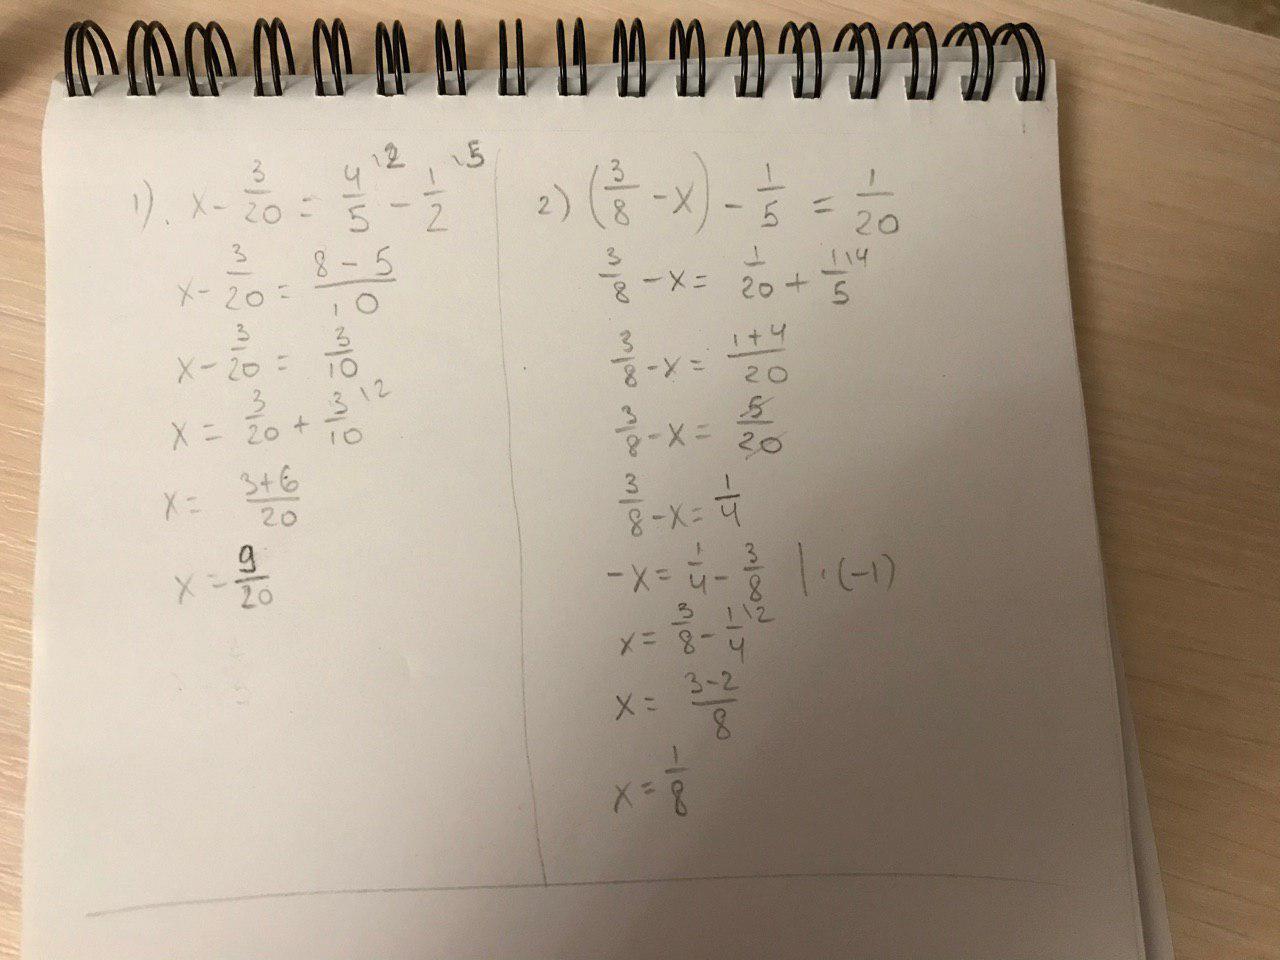 1). x - 3/20 = 4/5 \2 - 1/2 \5
x - 3/20 = (8 - 5)/10
x - 3/20 = 3/10
x = 3/20 + 3/10 \2
x = (3+6)/20
x = 9/20
2) (3/8 - x) - 1/5 = 1/20
3/8 - x = 1/20 + 1/5 \4
3/8 - x = (1+4)/20
3/8 - x = 5/20
3/8 - x = 1/4
-x = 1/4 - 3/8 | · (-1)
x = 3/8 - 1/4 \2
x = (3-2)/8
x = 1/8